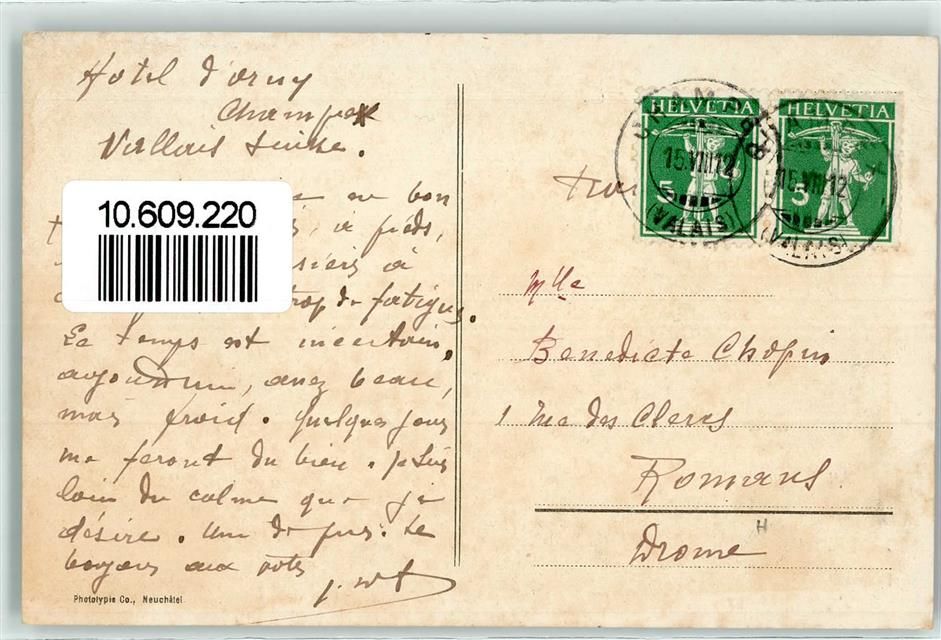 Hotel d'orny
Champex
Vallais Suisse.
10.609.220
en bon
à pieds,
à
trop de fatigue.
Le temps est incertain,
aujourd'hui, assez beau,
mais froid. Quelques jours
me feront du bien. Je suis
loin du calme que je
désire. de plus. Le
aux
Phototypie Co., Neuchâtel
HELVETIA
HELVETIA
CHAMPEX
15.VIII.12
15.VIII.12
5
5
(VALAIS)
(VALAIS)
Mlle
Benedicte Chopin
1 rue des Clercs
Romans.
Drome
H